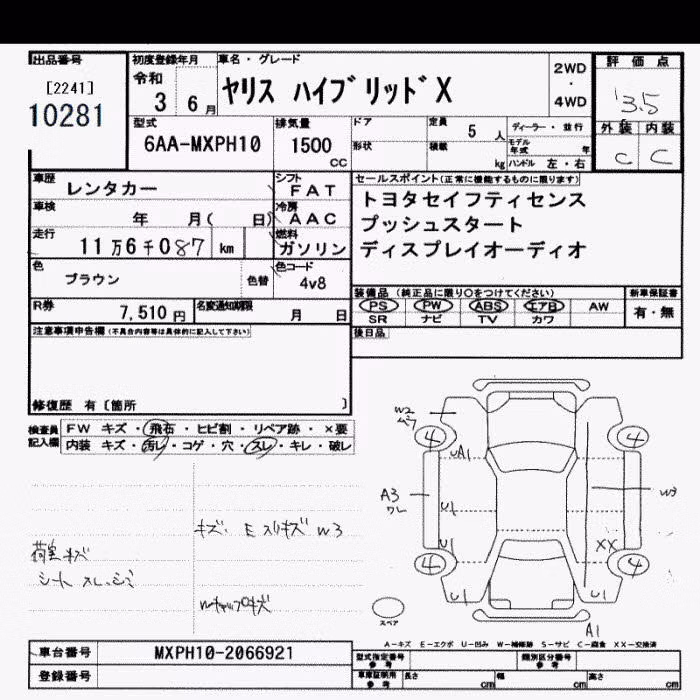 出品番号 初度登録年月 車名・グレード 評価点
[2241] 令和 2WD
10281 3 6月 ヤリス ハイブリッド X ・ 3.5
4WD
型式 排気量 ドア 定員 5 人 ディーラー・並行 外装 内装
6AA-MXPH10 1500 CC 形状 積載 kg モデル年式 年 C C
ハンドル 左・右
車歴 レンタカー シフト FAT セールスポイント(正常に機能するものに限ります)
車検 年 月( 日) 冷房 AAC トヨタセイフティセンス
走行 11万6千087 km 燃料 ガソリン プッシュスタート
ディスプレイオーディオ
色 ブラウン 色替 色コード 4v8
装備品(純正品に限り○をつけてください) 新車保証書
R券 7,510円 名変通知期限 月 日 PS PW ABS エアB AW 有・無
SR ナビ TV カワ
注意事項申告欄(不具合内容等は具体的に記入して下さい) 後日品
修復歴 有〔箇所 〕
検査員記入欄 FW キズ・飛石・ヒビ割・リペア跡・×要
内装 キズ・汚レ・コゲ・穴・スレ・キレ・破レ
W2
4 4
UA1
A3 ワレ W3
U1
キズ・E スリキズ W3
U1 XX
荷室キズ
4 4
シート スレ・シミ
U1
Wキャップキズ
スペア
A1
A-キズ E-エクボ U-凹み W-補修跡 S-サビ C-腐食 XX-交換済
車台番号 MXPH10-2066921 型式指定番号 参考 類別区分番号 参考
登録番号 車庫証明用 参考 長さ cm 幅 cm 高さ cm